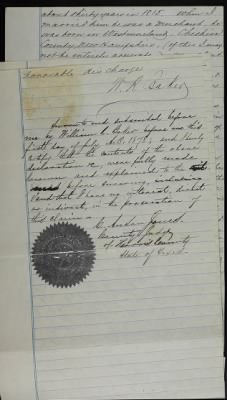 about thirty years in 1838. When I
married him he was a Merchant. He
was born in Westmoreland, Cheshire
County, New Hampshire. (If this I may
not be entirely accurate
honorable discharge
W. R. Baker
Sworn to and subscribed before
me by William R. Baker before me this
first day of July A.D. 1878, and I hereby
certify that the contents of the above
declaration &c were fully made
known and explained to the
before swearing, including
and that I have no interest, direct
or indirect, in the prosecution of
this claim
C. Anson Jones
County Judge
of Harris County
State of Texas